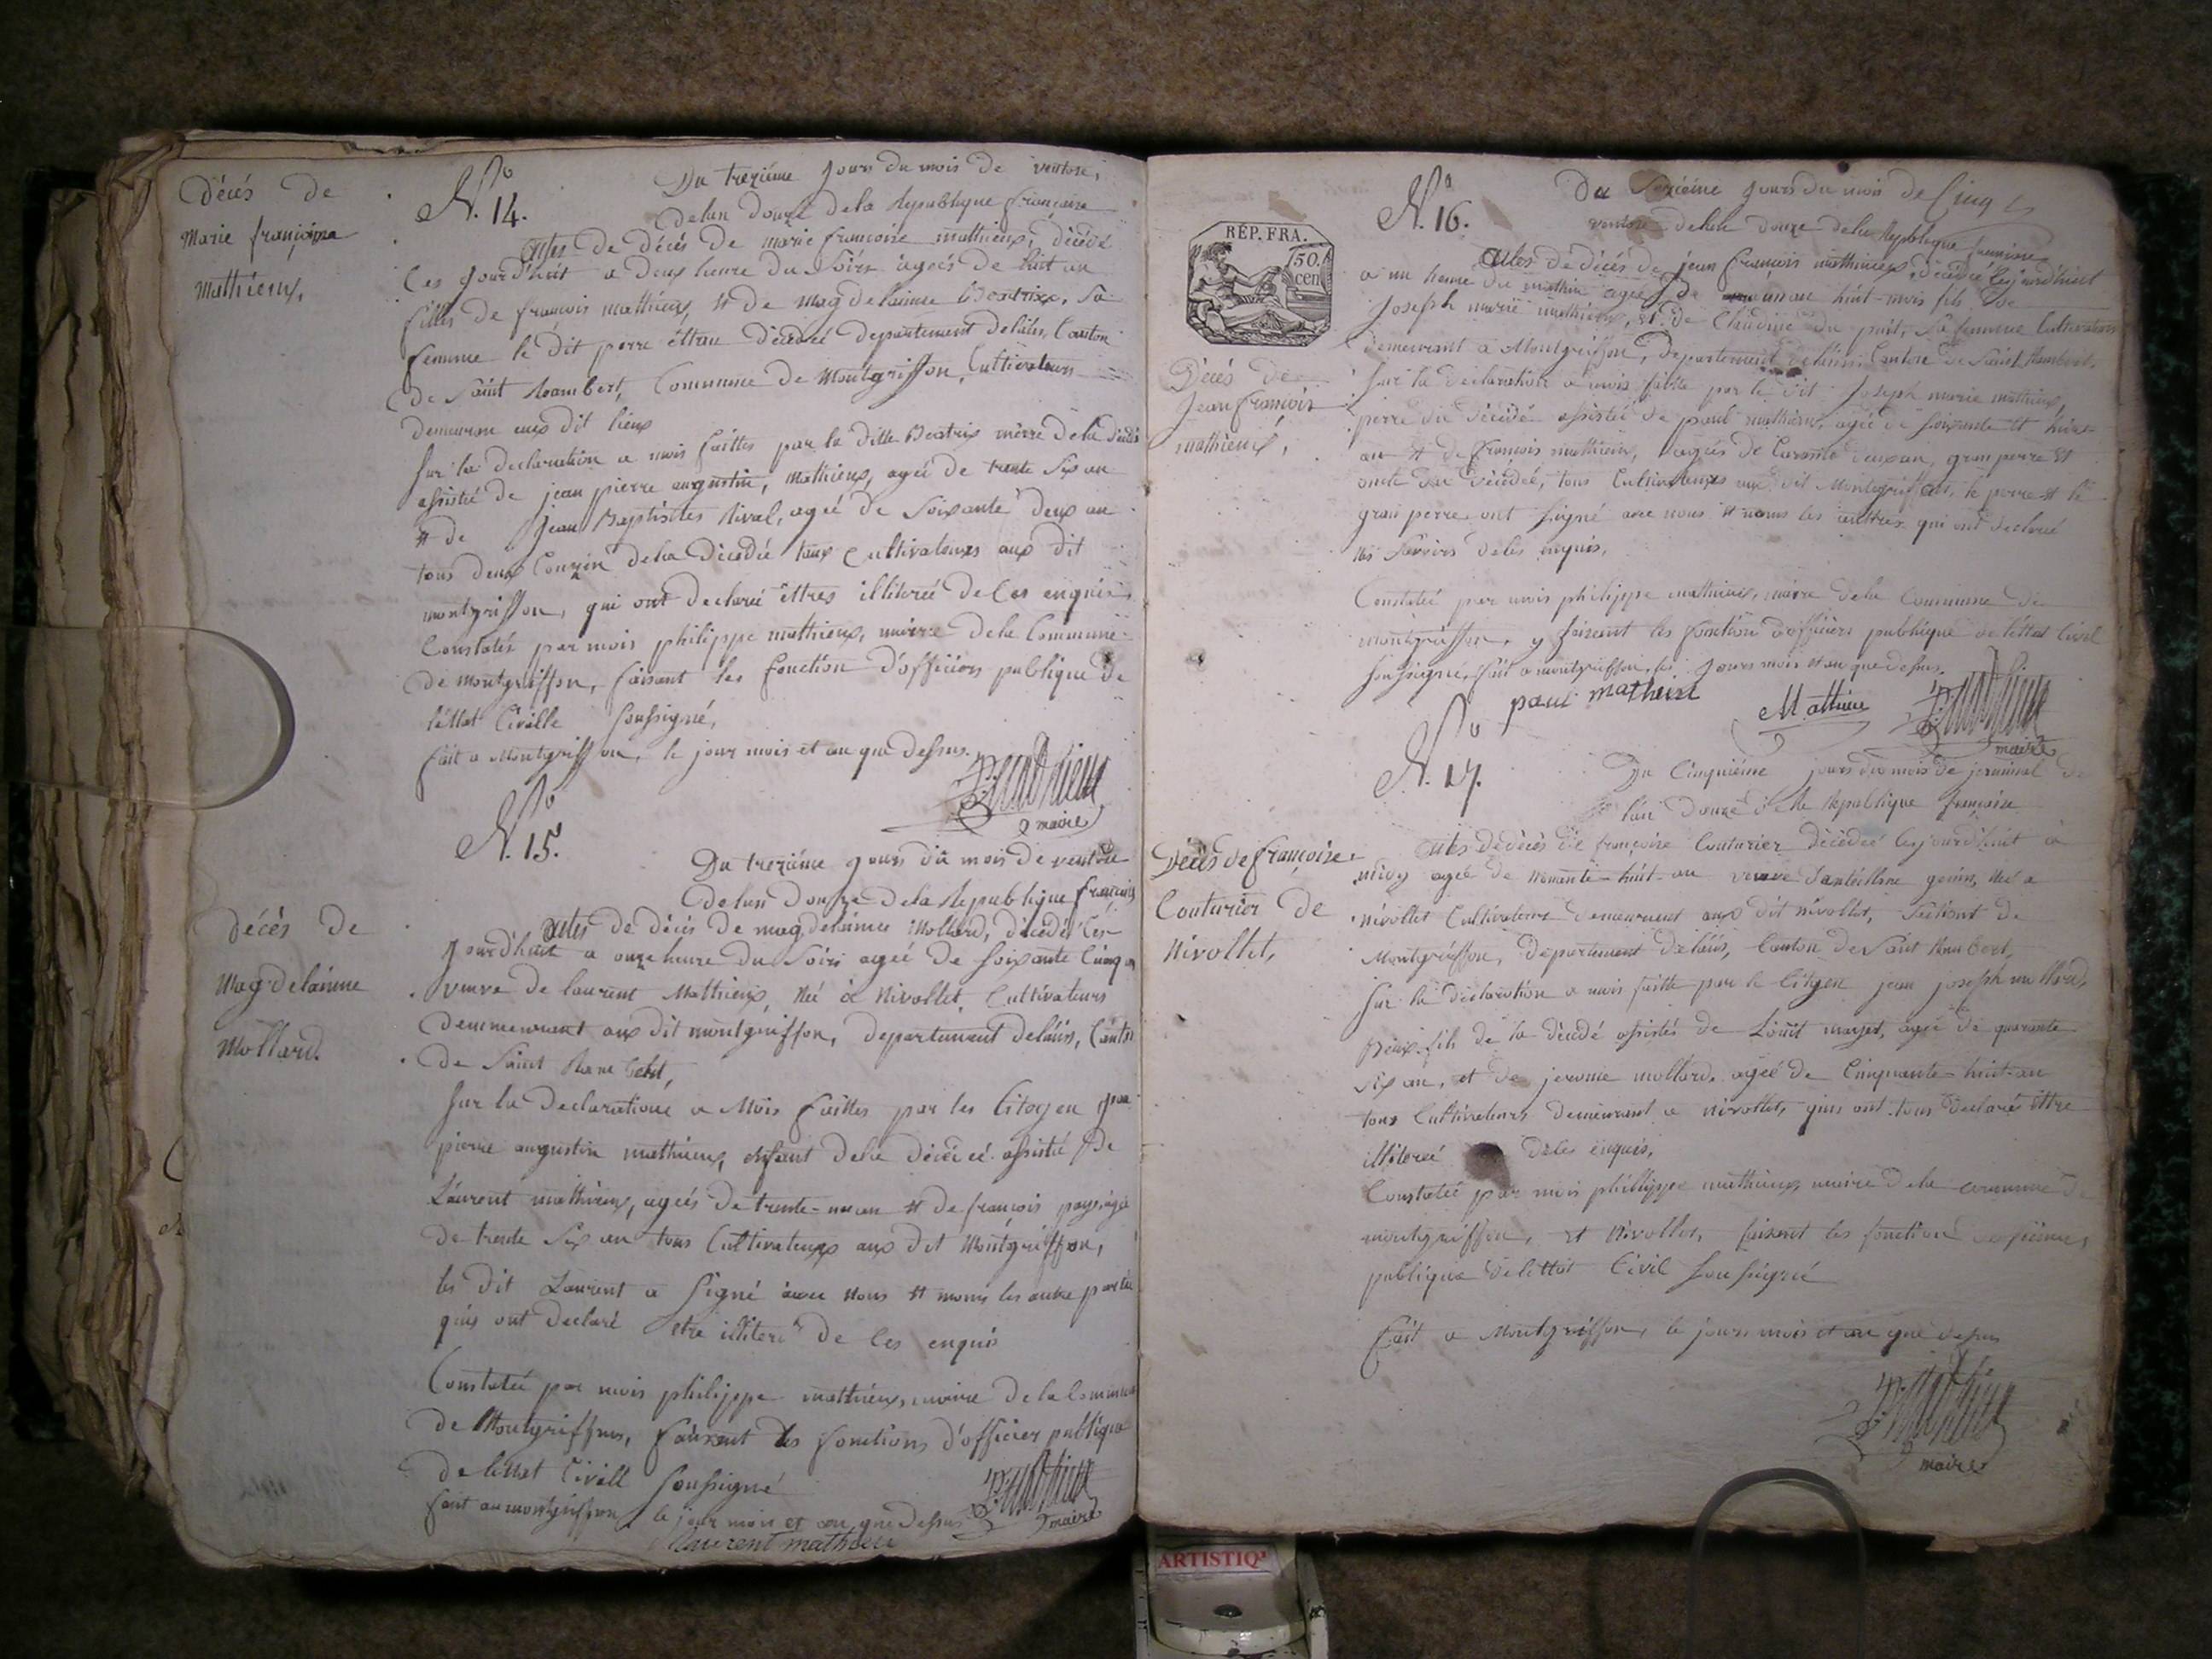 Décés de
Marie françoise
Mathieux,
No. 14.
Du treziéme jours du mois de ventose,
delan douze dela Republique françaire
actes de décés de marie francoise mathieux, décédé
ces jourd'huit a deux heure du Soirs ageés de huit an
filles de françois mathieux, et de magdelainne Beatrix, sa
femme le dit perre êttan décédeé departement delain, Canton
de Saint Rambert, Commune de Montgriffon, Cultivateurs
demuran aux dit lieux
sur la declaration a mois faittes par la ditte Beatrix mérre dela décédé
assistié de jean pierre augustin, Mathieux, ageé de trente Six an
et de jean Baptistes Rival, ageé de Soixante deux an
tous deux Couzin dela décédée tous cultivateurs aux dit
montgriffon, qui ont declareé êttres illitereé de ces enquis
Constatés par mois philippe mathieux, mairre dela Commune
de montgriffon, faisant les fonction d'officiers publique de
léttat Civille soussigné,
fait a Montgriffon, le jour mois et an que dessus.
P. Mathieux
maire
No. 15.
Décés de
Magdelainne
Mollard.
Du treziéme jours dû mois de ventose
delan douze dela Republique français
actes de décés de magdelainne Mollard, décédé ces
jourd'huit a onze heure du Soirs ageé de soixante Cinq an
veuve de laurent Mathieux, Neé à Nivollet, Cultivateurs
demmeurant aux dit montgriffon, departement delains, Canton
de Saint Rambert,
sur la declaratione a Mois faittes par les Citoyen jean
pierre augustin mathieux, enfant dela décédé assistié de
Laurent mathieux, ageés de trente-un an et de françois pays, age
de trente Six an tous Cultivateurs aux dit Montgriffon,
les dit Laurent a signé avec nous et nonn les autre partie
quis ont declaré etre illiteré de ces enquis
Constateé par mois philippe mathieux, maire de la Commune
de Montgriffon, faisant les fonctions d'officier publique
de léttat Civill soussigné
fait au montgriffon le jour mois et an que dessus
P. Mathieux
maire
laurent mathieu
RÉP. FRA.
50.
cen
No. 16.
Décés de
Jean françois
mathieux,
Du Seziéme jours du mois de
ventose delan douze dela Republique francaire
actes dé décés de jean françois mathieux, décédeé Cejourd'huit
a un heure du mathin ageé de un an huit mois fils de
joseph marie mathieux, et de Claudine du puit, sa femme Cultivateurs
demeurant a Montgriffon, departement delains, Canton de Saint Rambert,
sur la déclaration a mois faitte par le dit joseph marie mathieux,
perre du décédé assistié de paul mathieux, ageé de soixante et huit
an et de françois mathieux, ageés de Carante deux an, gran perre et
oncle du décédeé, tous Cultivateurs aux dit Montgriffon, le perre et le
gran perre ont signé avec nous et nonns les auttres qui ont declareé
nes savoirs deles enquis,
Constateé par mois philippe mathieux, mairre dela Commune de
montgriffon, y faisant les fonction d'officiers publique de léttat Civil
soussigné, fait a montgriffon, les jours mois et an que dessus.
paul matheux
Mathieu
P. Mathieux
maire
No. 17.
Décés de françoise
Couturier de
Nivollet,
Du Cinquiéme jours du mois de jerminal de
lan douze de la Republique françaire
actes de décés de françoise Couturier décédeé Cejourd'huit à
midy ageé de nonante-huit an veuve Neé a
nivollet Cultivateurs demeurant aux dit nivollet, Sectiont de
Montgriffon, departement delains, Canton de Saint Rambert,
sur la déclaration a mois faitte par le Citoyen jean joseph mollard,
beaux fils de la décédé assistés de Loüit ageé de quarante
six an, et de jerome mollard, ageé de Cinquante huit an
tous Cultivateurs demeurant a nivollet, quis ont tous declaré êttre
illitereé deles enquis,
Constateé par mois philippe mathieux, maire dela commune de
montgriffon, et Nivollet, faisant les fonction
publique de lettat Civil soussigné
fait a Montgriffon, le jours mois et an que dessus
P. Mathieux
maire
ARTISTIQ